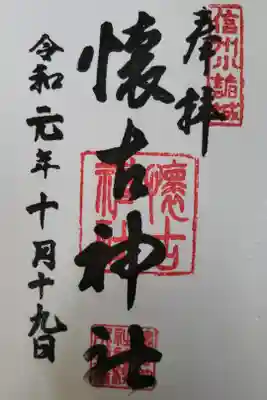 信州小諸城
奉拝
懐古神社
懐古
神社
令和元年十月十九日